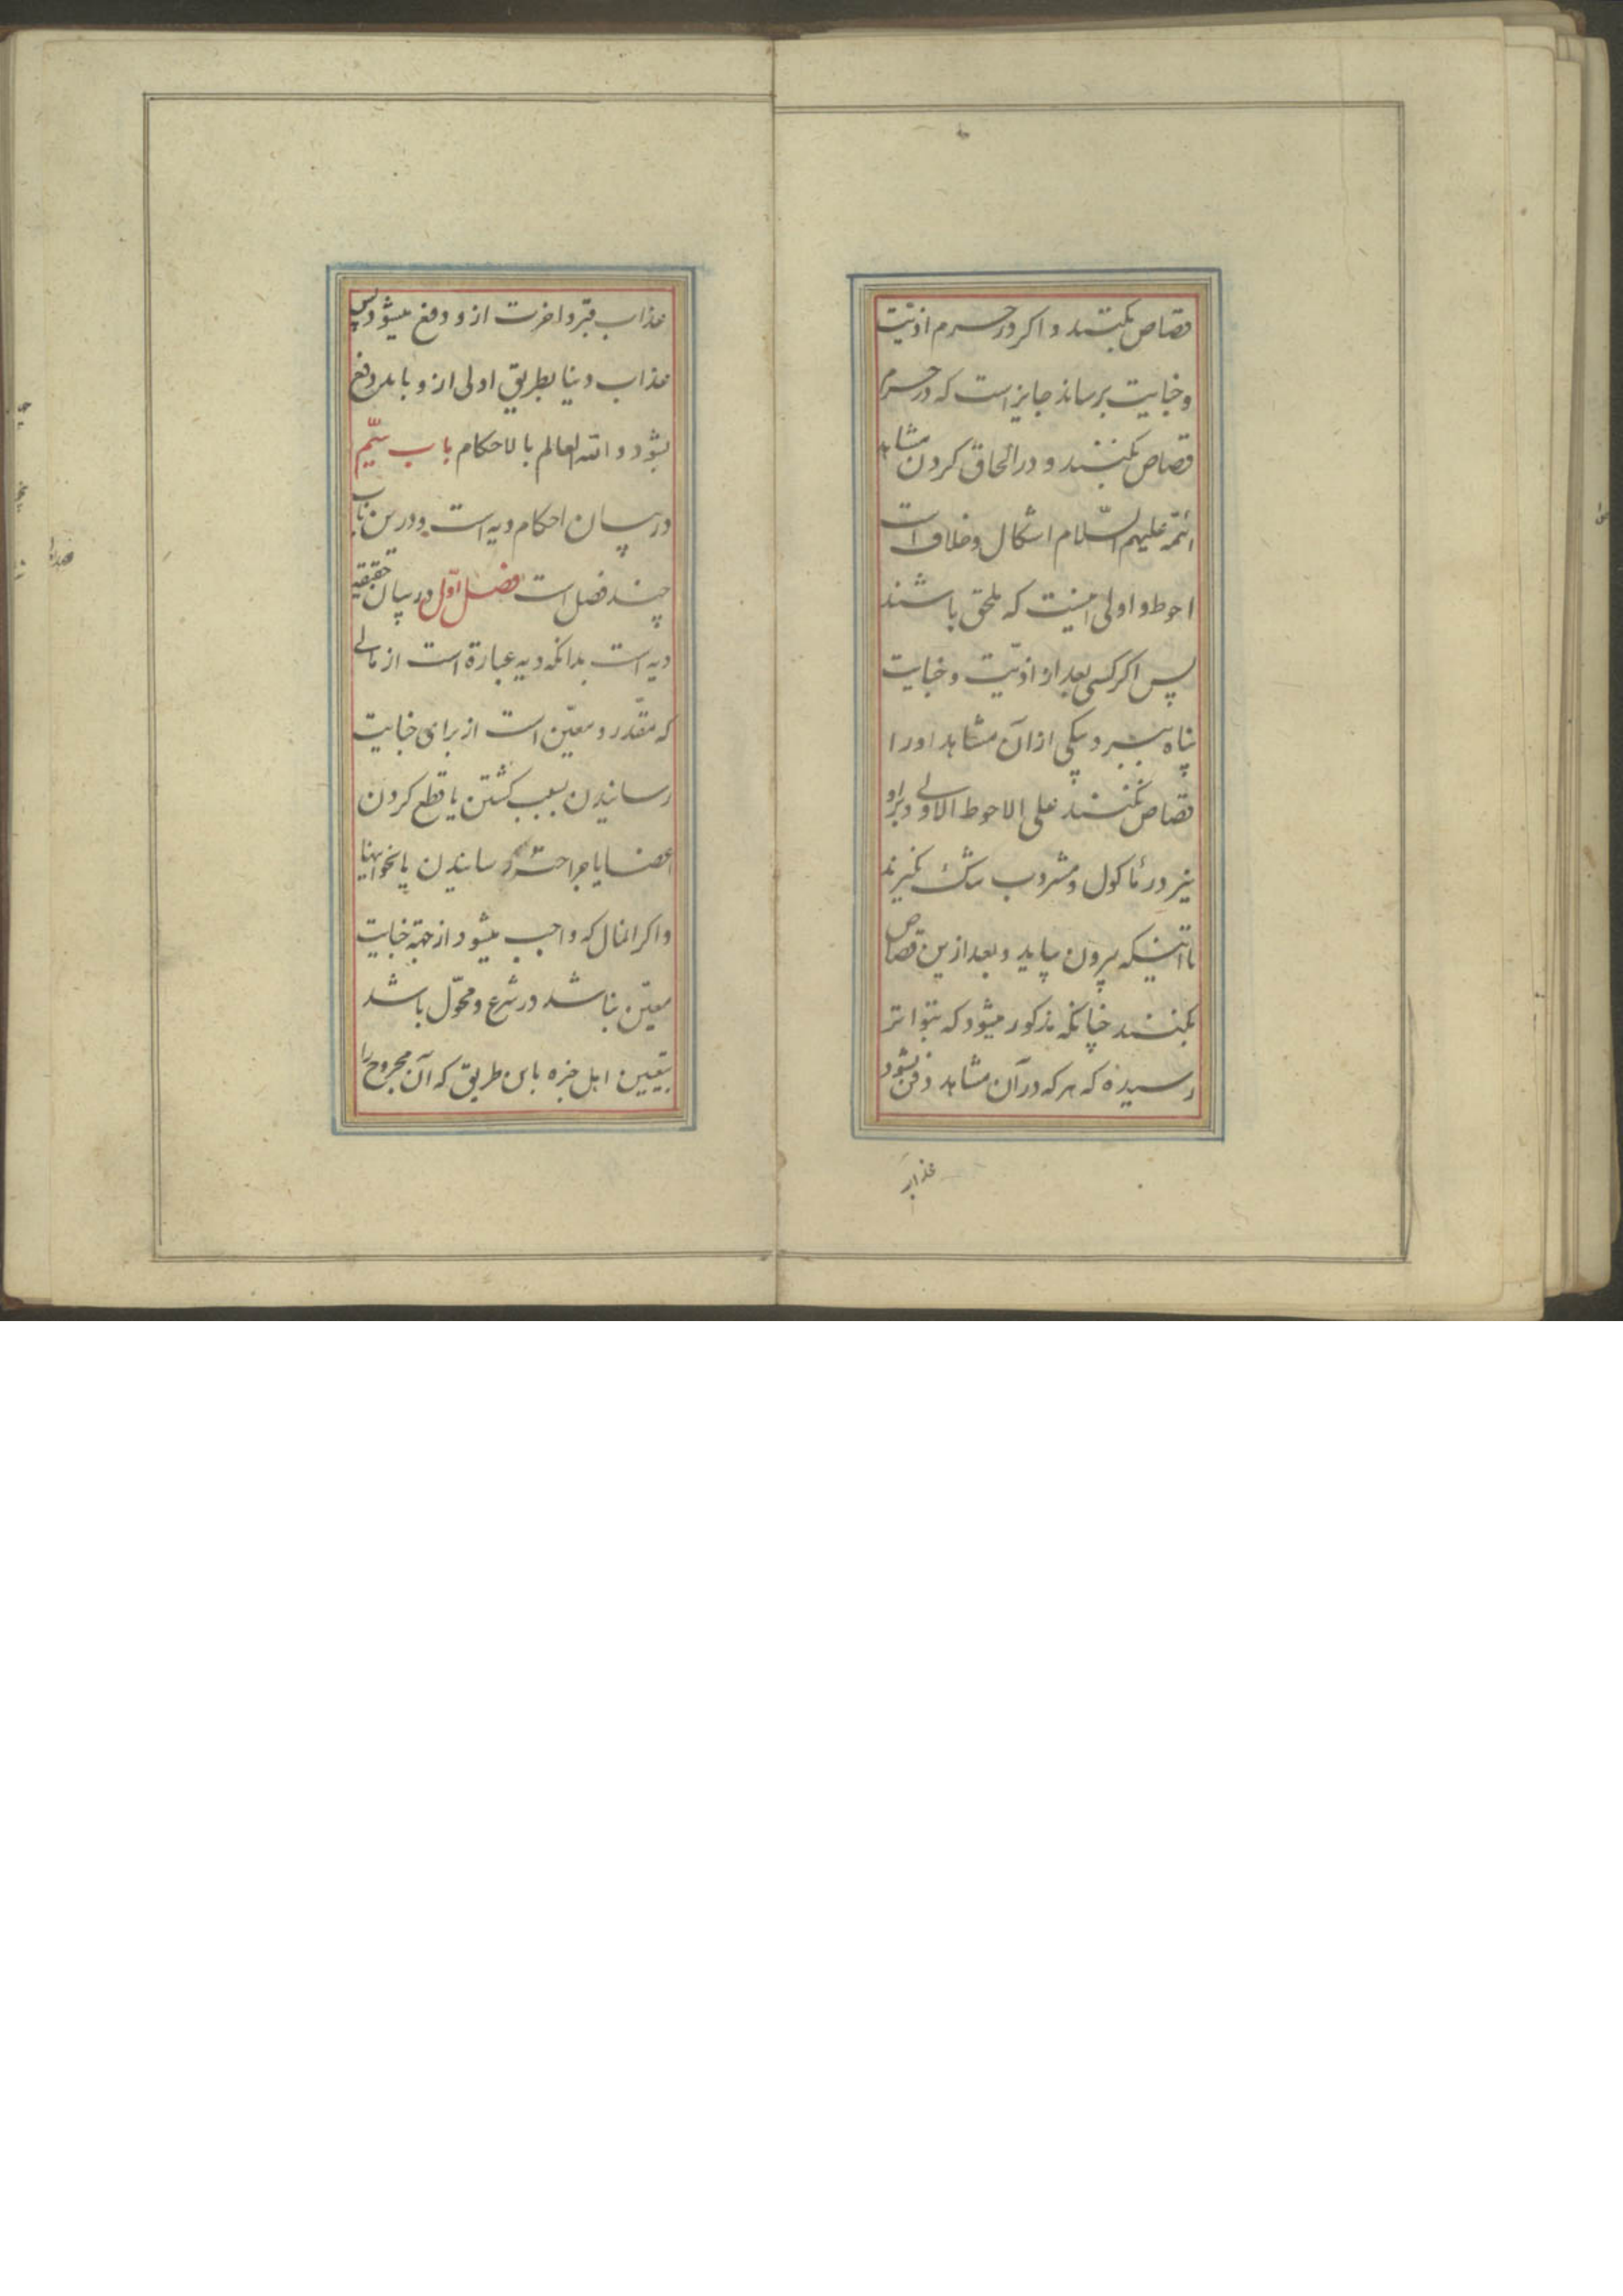 قصاص بکنند و اکر در حرم اذیّت
و جنایت برساند جایز است که در حرم
قصاص بکنند و در الحاق کردن مشاهد
ائمّه علیهم السّلام اشکال و خلاف است
احوط و اولی اینست که ملحق باشند
پس اکر کسی بعد از اذیّت و جنایت
پناه ببرد بیکی از آن مشاهد او را
قصاص نکنند علی الاحوط الاولی و بر او
نیز در مأکول و مشروب تنک بکیرند
تا اینکه بیرون بیاید و بعد ازین قصاص
بکنند چنانکه مذکور میشود که بتواتر
رسیده که هر که در آن مشاهد دفن بشود
عذاب
عذاب قبر و اخرت از و دفع میشود پس
عذاب دنیا بطریق اولی از و باید دفع
بشود و الله العالم بالاحکام باب سیّم
در بیان احکام دیه است و درین باب
چند فصل است فصل اوّل در بیان حقیقة
دیه است بدانکه دیه عبارة است از مالی
که مقدّر و معیّن است از برای جنایت
رسانیدن بسبب کشتن یا قطع کردن
اعضا یا جراحت رسانیدن یا نحو اینها
و اکر انمال که واجب میشود از جهة جنایت
معیّن نباشد در شرع و محوّل باشد
بتعیین اهل خبره باین طریق که آن مجروح را